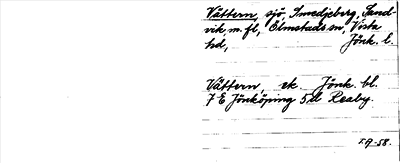 Vättern, sjö, Smedjeberg, Sand-
vik m. fl., Elmstads sn, Vista
hd, Jönk. l.
Vättern, ek. Jönk. bl.
7 E Jönköping 5 d Reaby.
59-58.